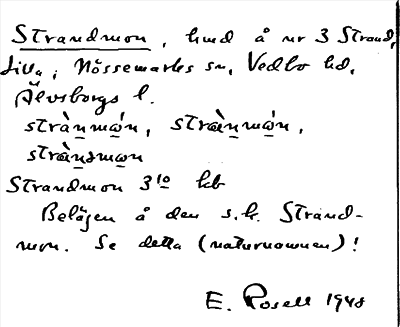 Strandmon, hmd å nr 3 Strand,
Lilla; Nössemarks sn, Vedbo hd,
Älvsborgs l.
strànmón, stràènmón,
stràǹdmon
Strandmon 3¹⁰ kb
Belägen å den s.k. Strand-
mon. Se detta (naturnamnen)!
E. Rosell 1948